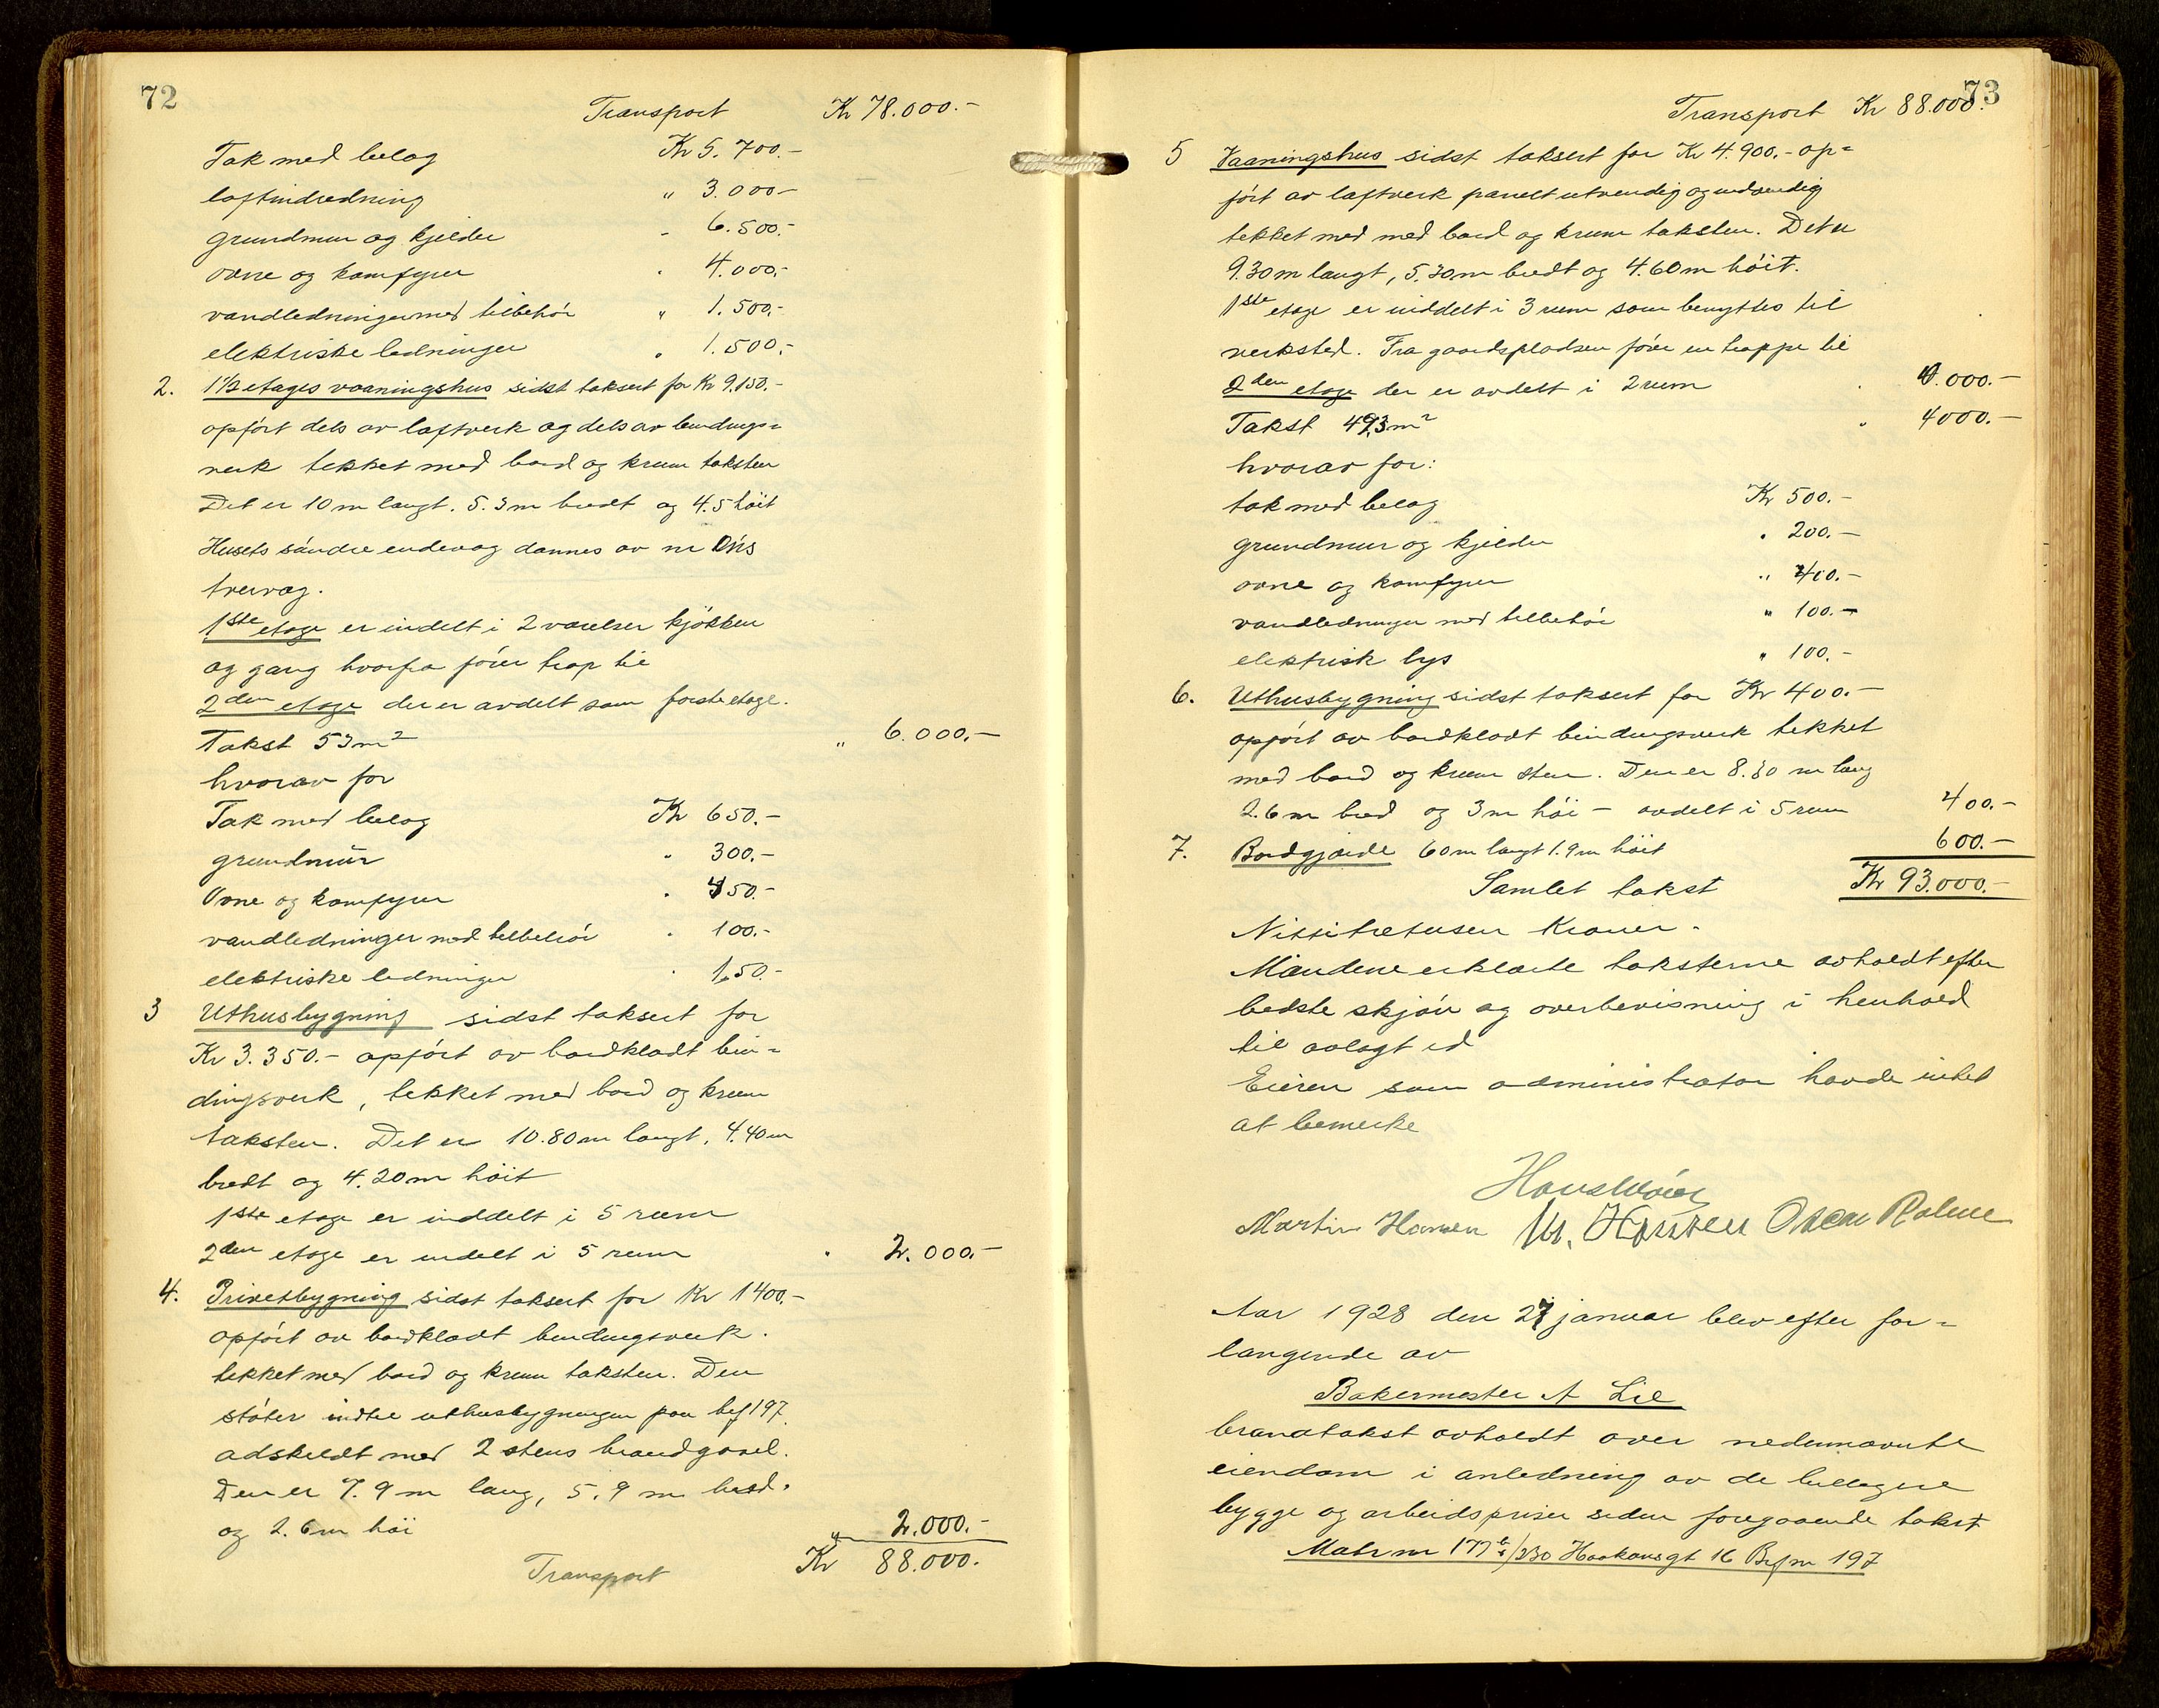 72
Transport Kr 78.000.-
Tak med belæg Kr 5.700.-
loftindredning " 3.000-
grundmur og kjelder " 6.500.-
ovne og komfyrer " 4.000.-
vandledninger med tilbehör " 1.500.-
elektriske ledninger " 1.500.-
2. 1½ etages vaaningshus sidst taksert for Kr 9.150.-
opfört dels av laftverk og dels av bindings=
verk tekket med bord og krum taksten
Det er 10 m langt. 5.3 m bredt og 4.5 höit
Husets söndre endevæg dannes av nr 1ns
trevæg.
1ste etage er indelt i 2 værelser kjökken
og gang hvorfra förer trap til
2den etage der er avdelt som förste etage.
Takst 53 m2 " 6.000.-
hvorav for
Tak med belæg Kr 650.-
grundmur " 300.-
Ovne og komfyrer " 450.-
vandledninger med tilbehör " 100.-
elektriske ledninger " 150.-
3 Uthusbygning sidst taksert for
Kr 3.350.- opfört av bordklædt bin=
dingsverk, tekket med bord og krum
taksten. Det er 10.80 m langt, 4.40 m
bredt og 4.20 m höit
1ste etage er inddelt i 5 rum
2den etage er indelt i 5 rum " 2.000.-
4. Privetbygning sidst taksert for Kr 1400.-
opfört av bordklædt bindingsverk.
tekket med bord og krum taksten. Den
stöter indtil uthusbygningen paa bf 197
adskeldt med 2 stens brandgavl.
Den er 7.9 m lang, 5.9 m bred.
og 2.6 m höi " 2.000.-
Transport Kr 88.000.
73
Transport Kr 88.000.
5 Vaaningshus sidst taksert for Kr 4.900.- op=
fört av laftverk panelt utvendig og indvendig
tekket med med bord og krum taksten. Det er
9.30 m langt, 5.30 m bredt og 4.60 m höit.
1ste etage er inddelt i 3 rum som benyttes til
verksted. Fra gaardspladsen förer en trappe til
2den etage der er avdelt i 2 rum 4.000.-
Takst 49.3 m2 " 4000.-
hvorav for:
tak med belæg Kr 500.-
grundmur og kjelder " 200.-
ovne og komfyrer " 400.-
vandledninger med tilbehör " 100.-
elektrisk lys " 100.-
6. Uthusbygning sidst taksert for Kr 400.-
opfört av bordklædt bindingsverk tekket
med bord og krum sten. Den er 8.30 m lang
2.6 m bred og 3 m höi - avdelt i 5 rum 400.-
7. Bordgjærde 60 m langt 1.9 m höit 600.-
Samlet takst Kr 93.000.-
Nittitretusen Kroner.
Mændene erklærte taksterne avholdt efter
bedste skjön og overbevisning i henhold
til avlagt ed
Eieren som administrator havde intet
at bemerke
Martin Hansen M. Hansen Oscar Rolme
Aar 1928 den 27 januar blev efter for=
langende av
Bakermester A Lie
brandtakst avholdt over nedennævnte
eiendom i anledning av de billigere
bygge og arbeidspriser siden foregaaende takst
Matr nr 177 b/230 Haakonsgt 16 Brf nr 197